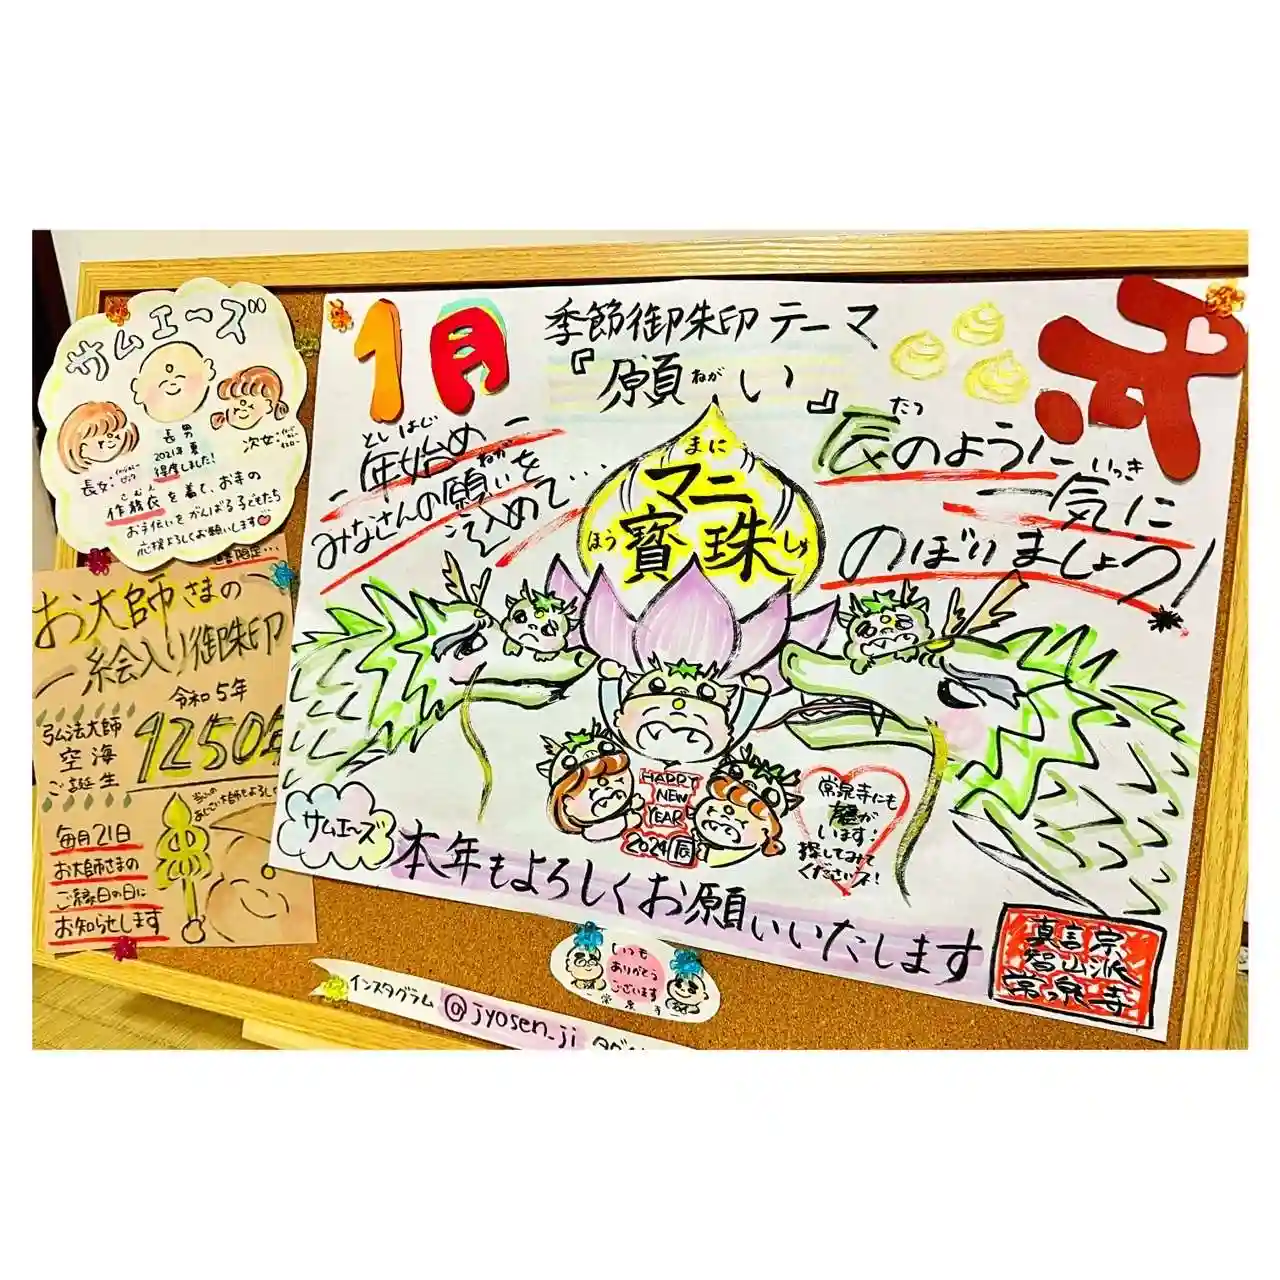 サムエーズ
長男
2021年夏
得度しました!
長女:
次女:
作務衣を着て、お寺の
お手伝いをがんばる子どもたち
応援よろしくお願いします
お大師さまの
絵入り御朱印
令和5年
弘法大師
空海
ご誕生
1250年
毎月21日
お大師さまの
ご縁日の日に
お知らせします
1月
季節御朱印テーマ
『願い』
ねが
としはじ
年始め
ねが
みなさんの願いを
込めて…
まに
マニ
ほう
寶珠
しゅ
たつ
辰のように
いっき
一気に
のぼりましょう!
HAPPY
NEW
YEAR
2024辰
常泉寺にも
龍が
います!
探してみて
くださいネ!
サムエーズ
本年もよろしくお願いいたします
真言宗
智山派
常泉寺
いつも
ありがとう
ございます
常泉寺
インスタグラム
@jyosen_ji